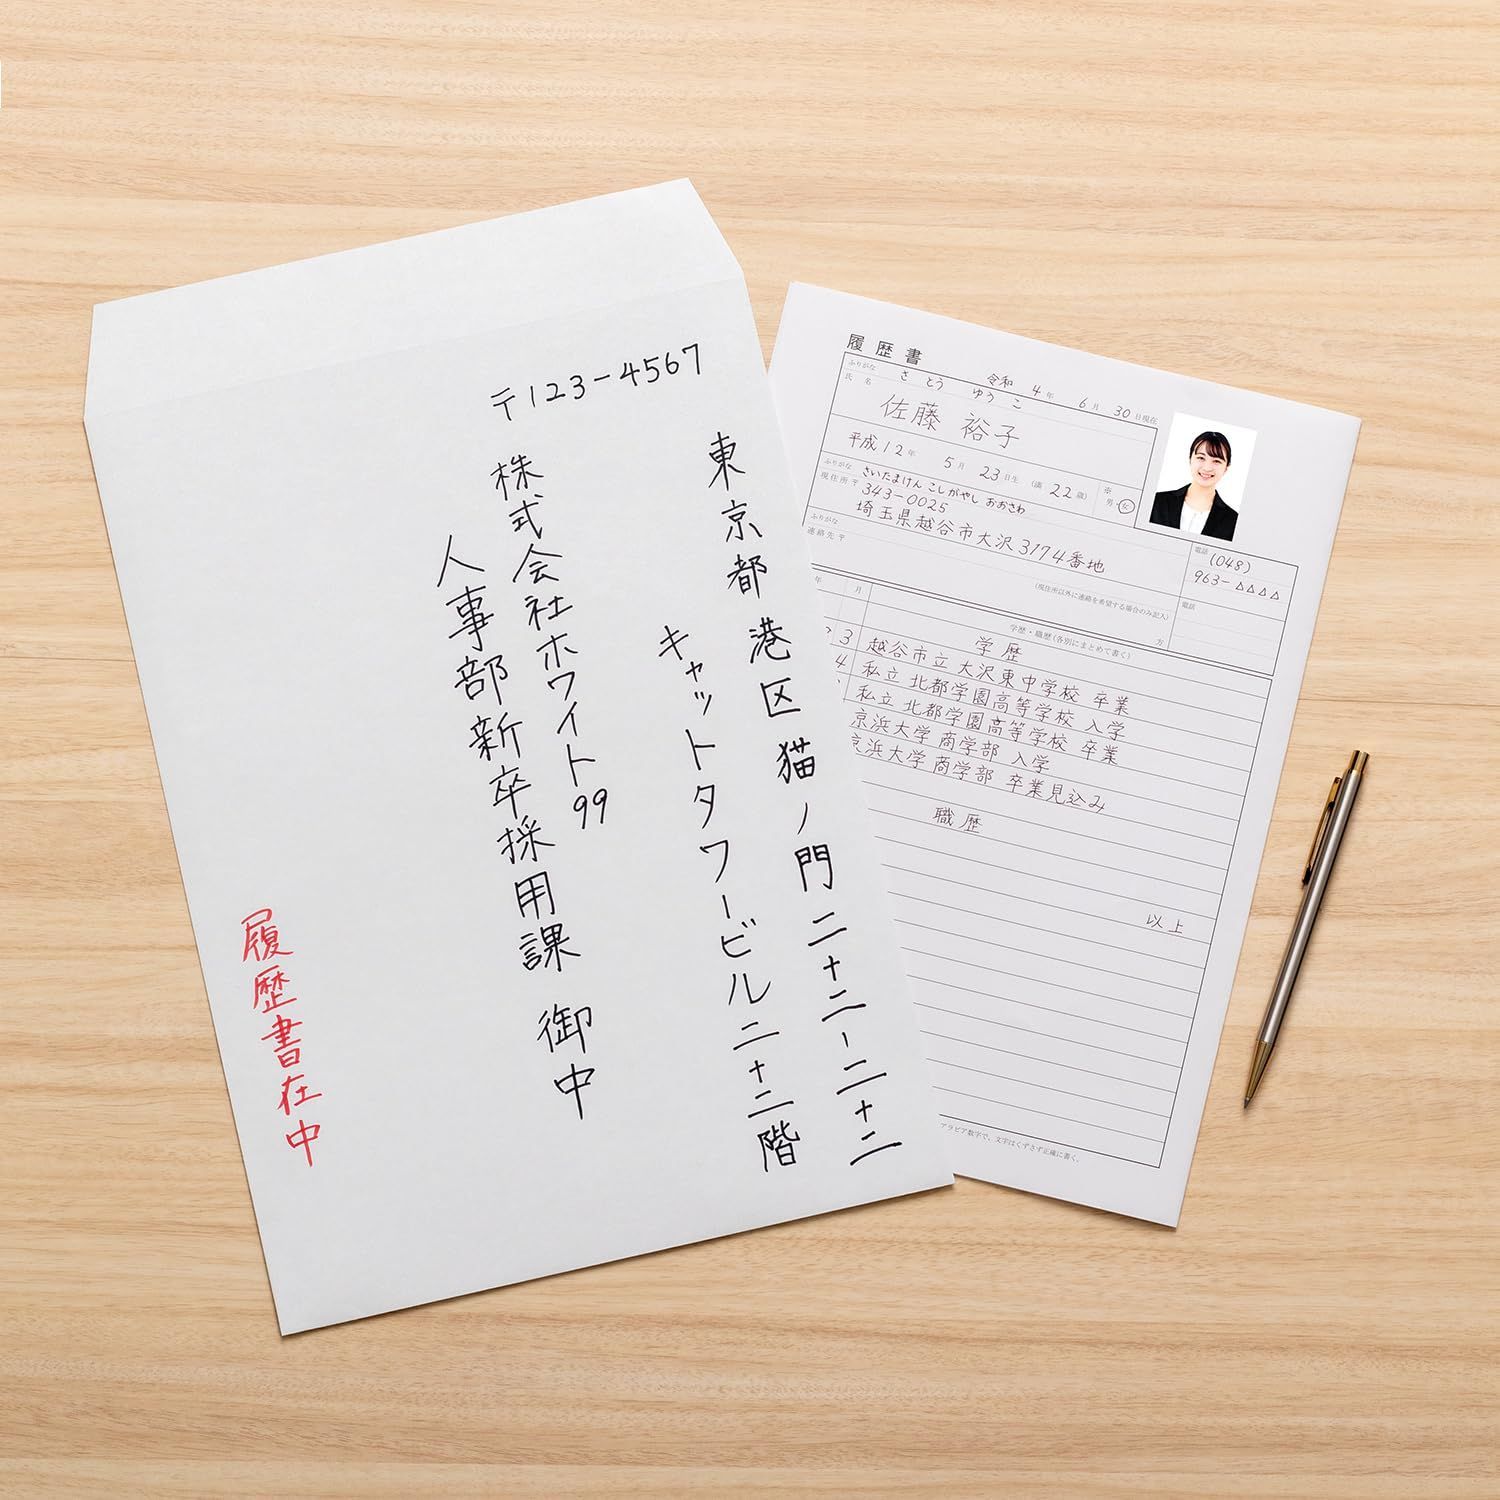 〒123-4567
東京都港区猫ノ門二十二-二十二
キャットタワービル二十二階
株式会社ホワイト99
人事部新卒採用課 御中
履歴書在中
履歴書
令和 4年 6月 30日現在
ふりがな さとう ゆうこ
氏名 佐藤 裕子
平成12年 5月 23日生 (満 22歳)
※
男・女
ふりがな さいたまけん こしがやし おおさわ
現住所 〒 343-0025
埼玉県越谷市大沢3174番地
電話 (048)
963-△△△△
ふりがな
連絡先 〒
(現住所以外に連絡を希望する場合のみ記入)
方
電話
年 月 学歴・職歴(各別にまとめて書く)
学歴
3 越谷市立 大沢東中学校 卒業
4 私立 北都学園高等学校 入学
私立 北都学園高等学校 卒業
京浜大学 商学部 入学
京浜大学 商学部 卒業見込み
職歴
以上
アラビア数字で、文字はくずさず正確に書く。